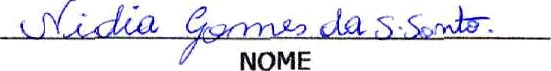 Nidia Gomes da S. Santo.
NOME